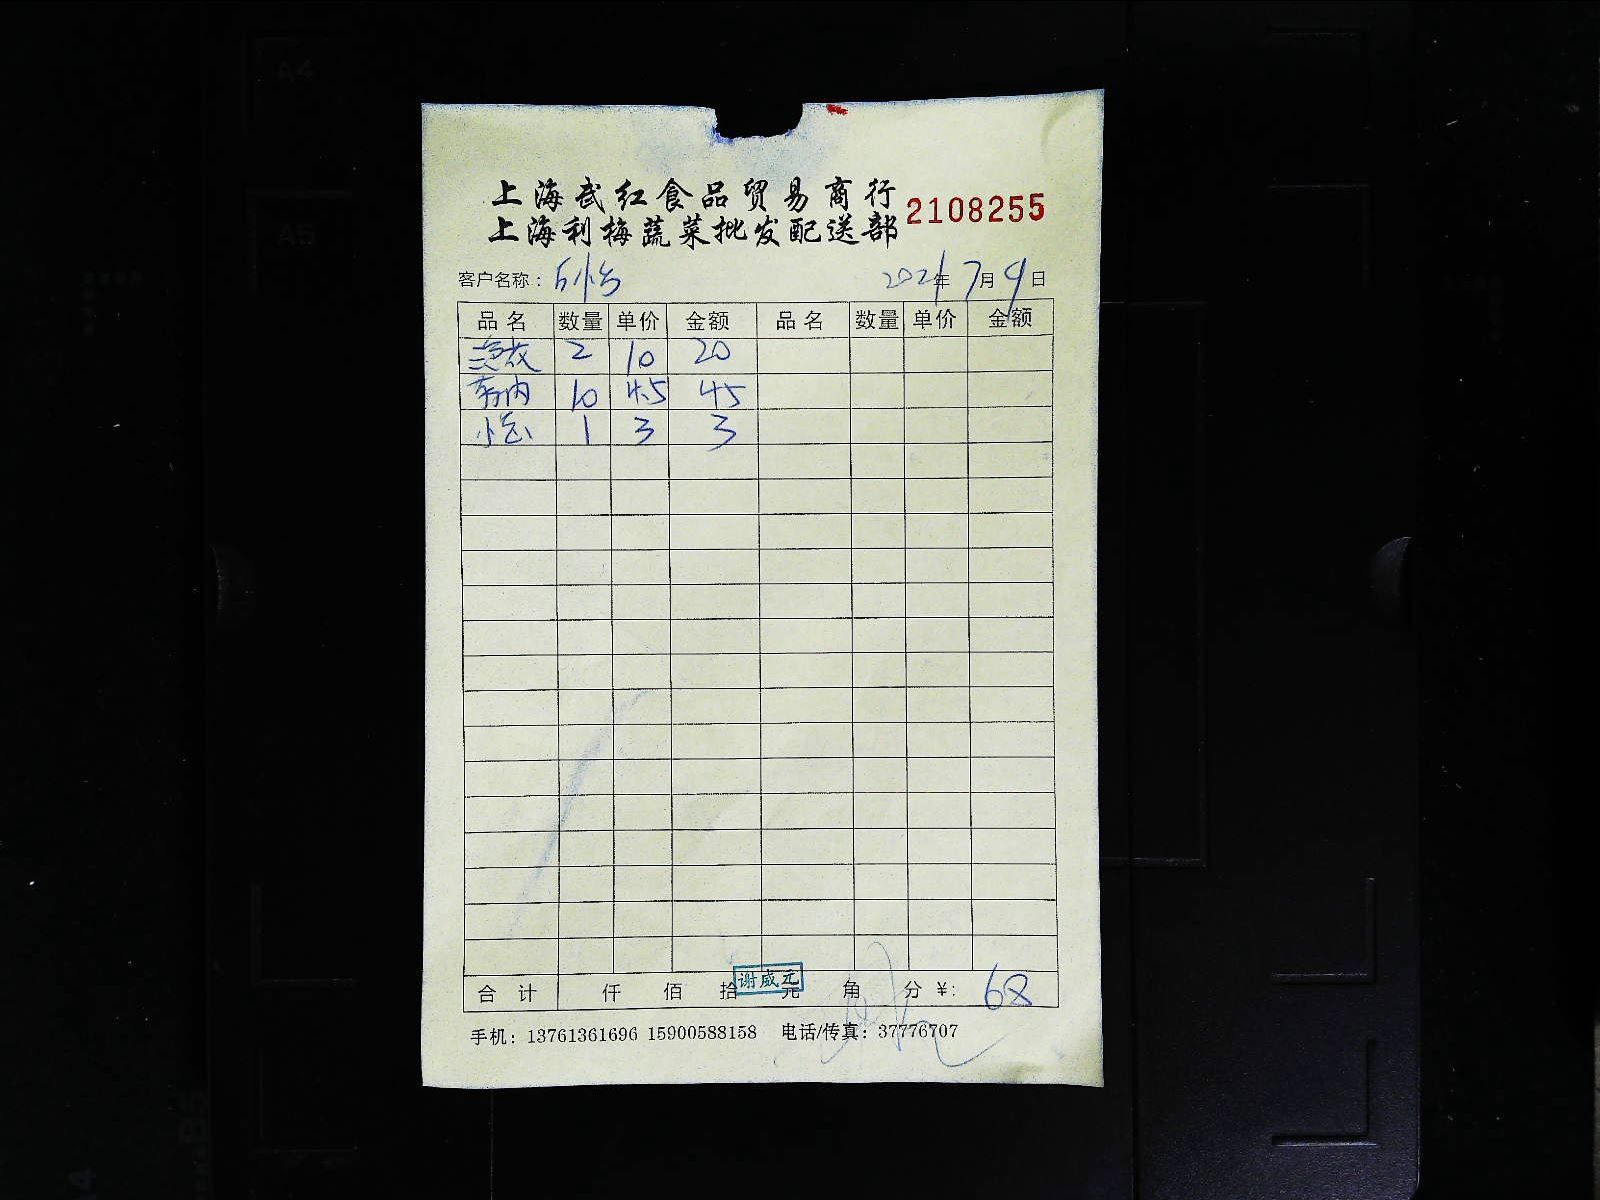 上海武红食品贸易商行
上海利梅蔬菜批发配送部 2108255
客户名称： 2021年7月9日
品名 数量 单价 金额 品名 数量 单价 金额
2 10 20
10 4.5 45
小 1 3 3
合计 仟 佰 拾 元 角 分 ¥: 68
谢威元
手机：13761361696 15900588158 电话/传真：37776707
A4
A5